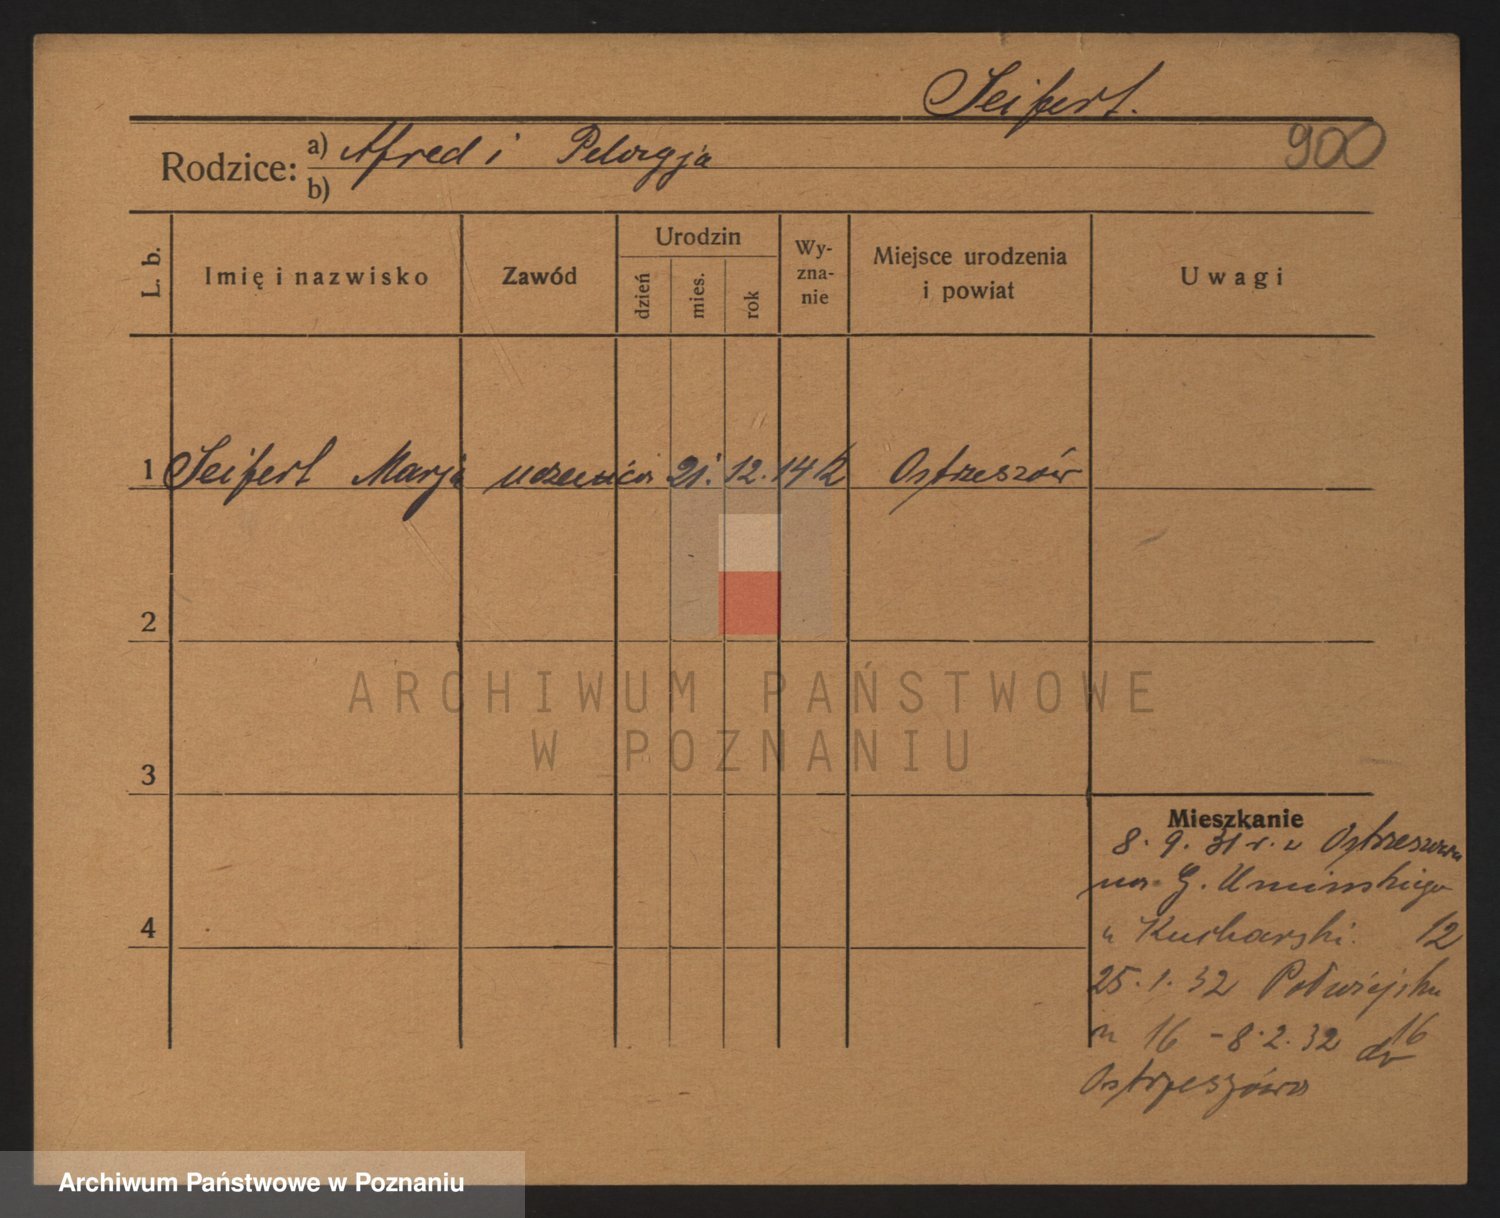 Seifert.
900
Rodzice: a) Afred i Pelagja
b)
L. b.
Imię i nazwisko
Zawód
Urodzin
dzień
mies.
rok
Wy-
zna-
nie
Miejsce urodzenia
i powiat
Uwagi
1 Seifert Marja uczenica 21. 12. 14 k Ostrzeszów
2
3
4
Mieszkanie
8. 9. 31 r. z Ostrzeszowa
na G. Umińskiego
u Kucharski. 12
25. 1. 32 Półwiejska
16
m 16 - 8. 2. 32 do
Ostrzeszowa
ARCHIWUM PAŃSTWOWE
W POZNANIU
Archiwum Państwowe w Poznaniu